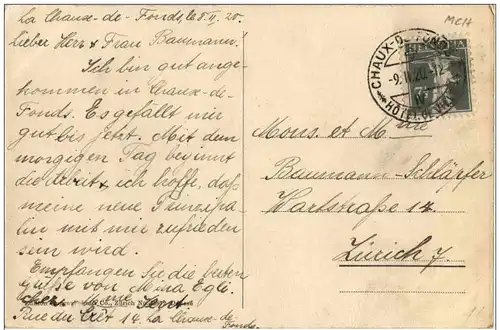 La Chaux-de-Fonds, le 8. II. 20.
Lieber Herr & Frau Baumann!
Ich bin gut ange-
kommen in Chaux-de-
Fonds. Es gefällt mir
gut bis jetzt. Mit dem
morgigen Tag beginnt
die Arbeit & ich hoffe, daß
meine neue Prinzipa-
lin mit mir zufrieden
sein wird.
Empfangen Sie die besten
Grüße von Mina Egli
Rue du Crêt 14. La Chaux-de-
Fonds.
Co., Zürich
MCH
CHAUX-DE-FONDS
-9. II. 20.-12
IV
HÔTEL DE VILLE
HELVETIA
Mons. et Mme
Baumann-Schläpfer
Hartstraße 14.
Zürich 7.